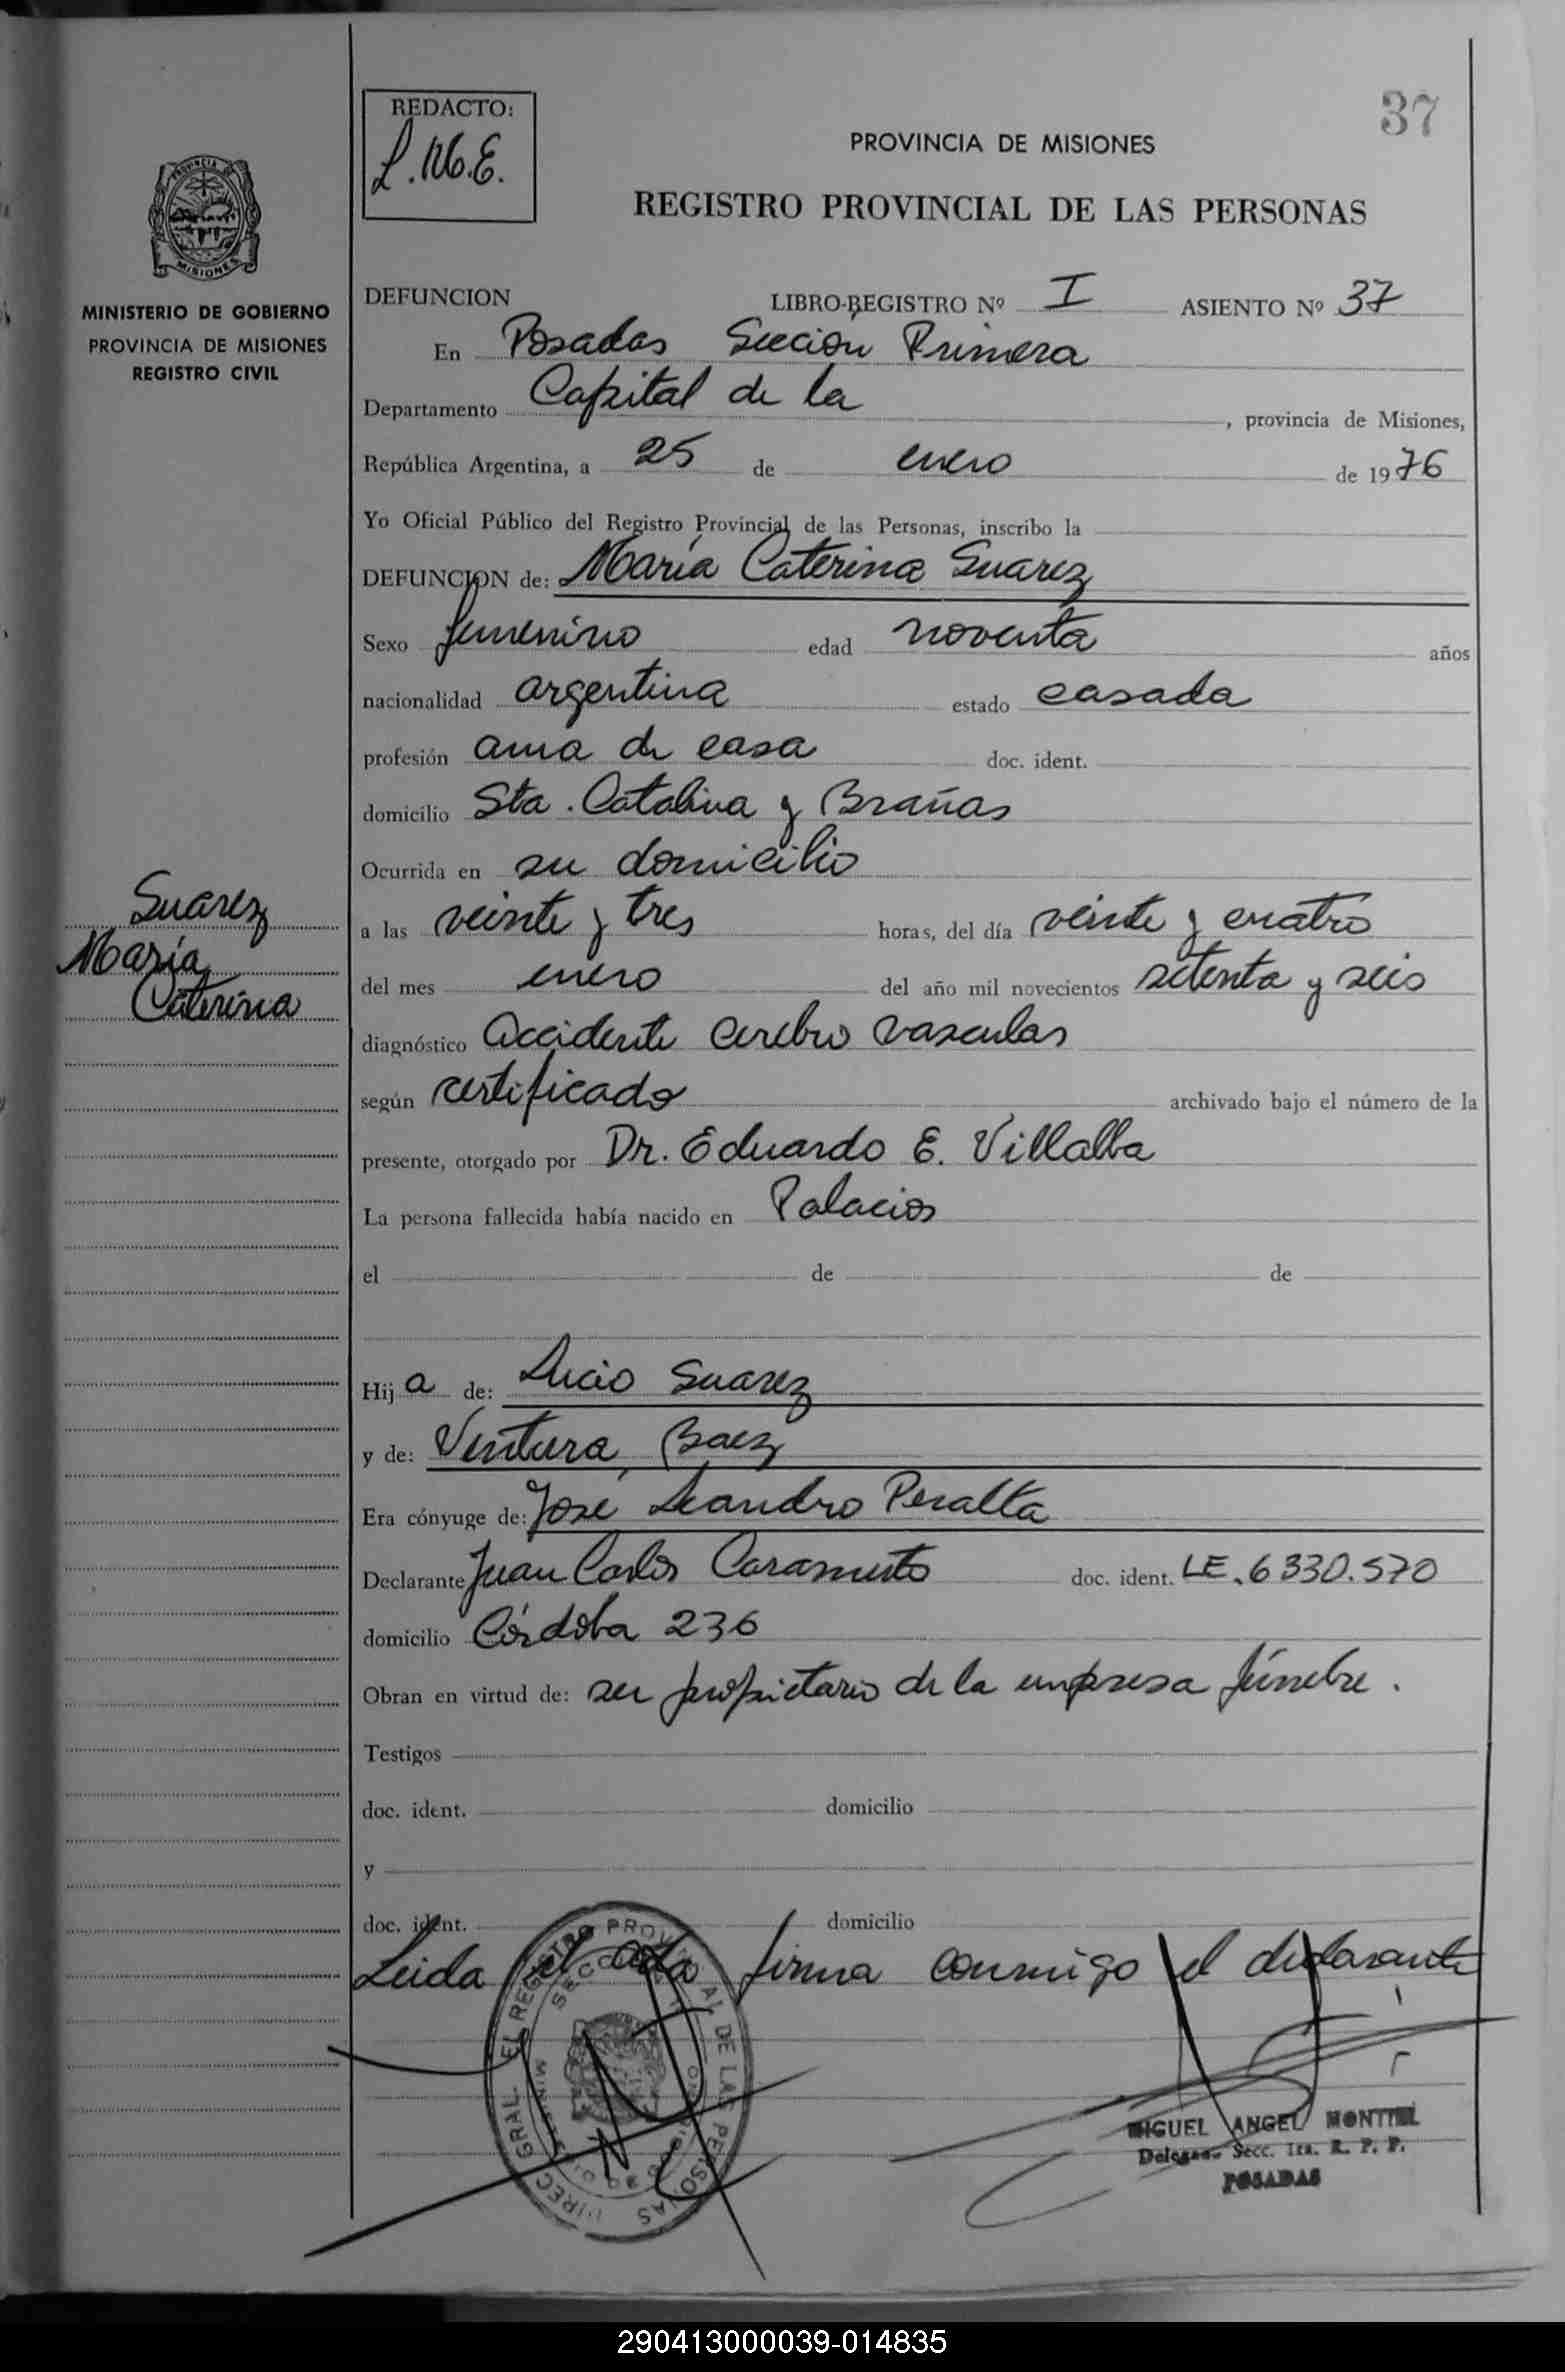 37
REDACTO:
L.M.E.
PROVINCIA DE MISIONES
REGISTRO PROVINCIAL DE LAS PERSONAS
PROVINCIA DE
MISIONES
MINISTERIO DE GOBIERNO
PROVINCIA DE MISIONES
REGISTRO CIVIL
DEFUNCION LIBRO-REGISTRO Nº I ASIENTO Nº 37
En Posadas Sección Primera
Departamento Capital de la , provincia de Misiones,
República Argentina, a 25 de enero de 1976
Yo Oficial Público del Registro Provincial de las Personas, inscribo la
DEFUNCION de: María Caterina Suarez
Sexo femenino edad noventa años
nacionalidad argentina estado casada
profesión ama de casa doc. ident.
domicilio Sta. Catalina y Brañas
Ocurrida en su domicilio
Suarez
María
Caterina
a las veinte y tres horas, del día veinte y cuatro
del mes enero del año mil novecientos setenta y seis
diagnóstico accidente cerebro vascular
según certificado archivado bajo el número de la
presente, otorgado por Dr. Eduardo E. Villalba
La persona fallecida había nacido en Palacios
el de de
Hija de: Lucio Suarez
y de: Ventura Baez
Era cónyuge de: José Leandro Peralta
Declarante Juan Carlos Caramuto doc. ident. LE. 6330.570
domicilio Córdoba 236
Obran en virtud de: ser propietario de la empresa fúnebre.
Testigos
doc. ident. domicilio
y
doc. ident. domicilio
Leida el acta firma conmigo el declarante
DIREC GRAL EL REGISTRO PROVINCIAL DE LAS PERSONAS
MIGUEL ANGEL MONTIEL
Delegado Secc. 1ra. R. P. P.
POSADAS
290413000039-014835